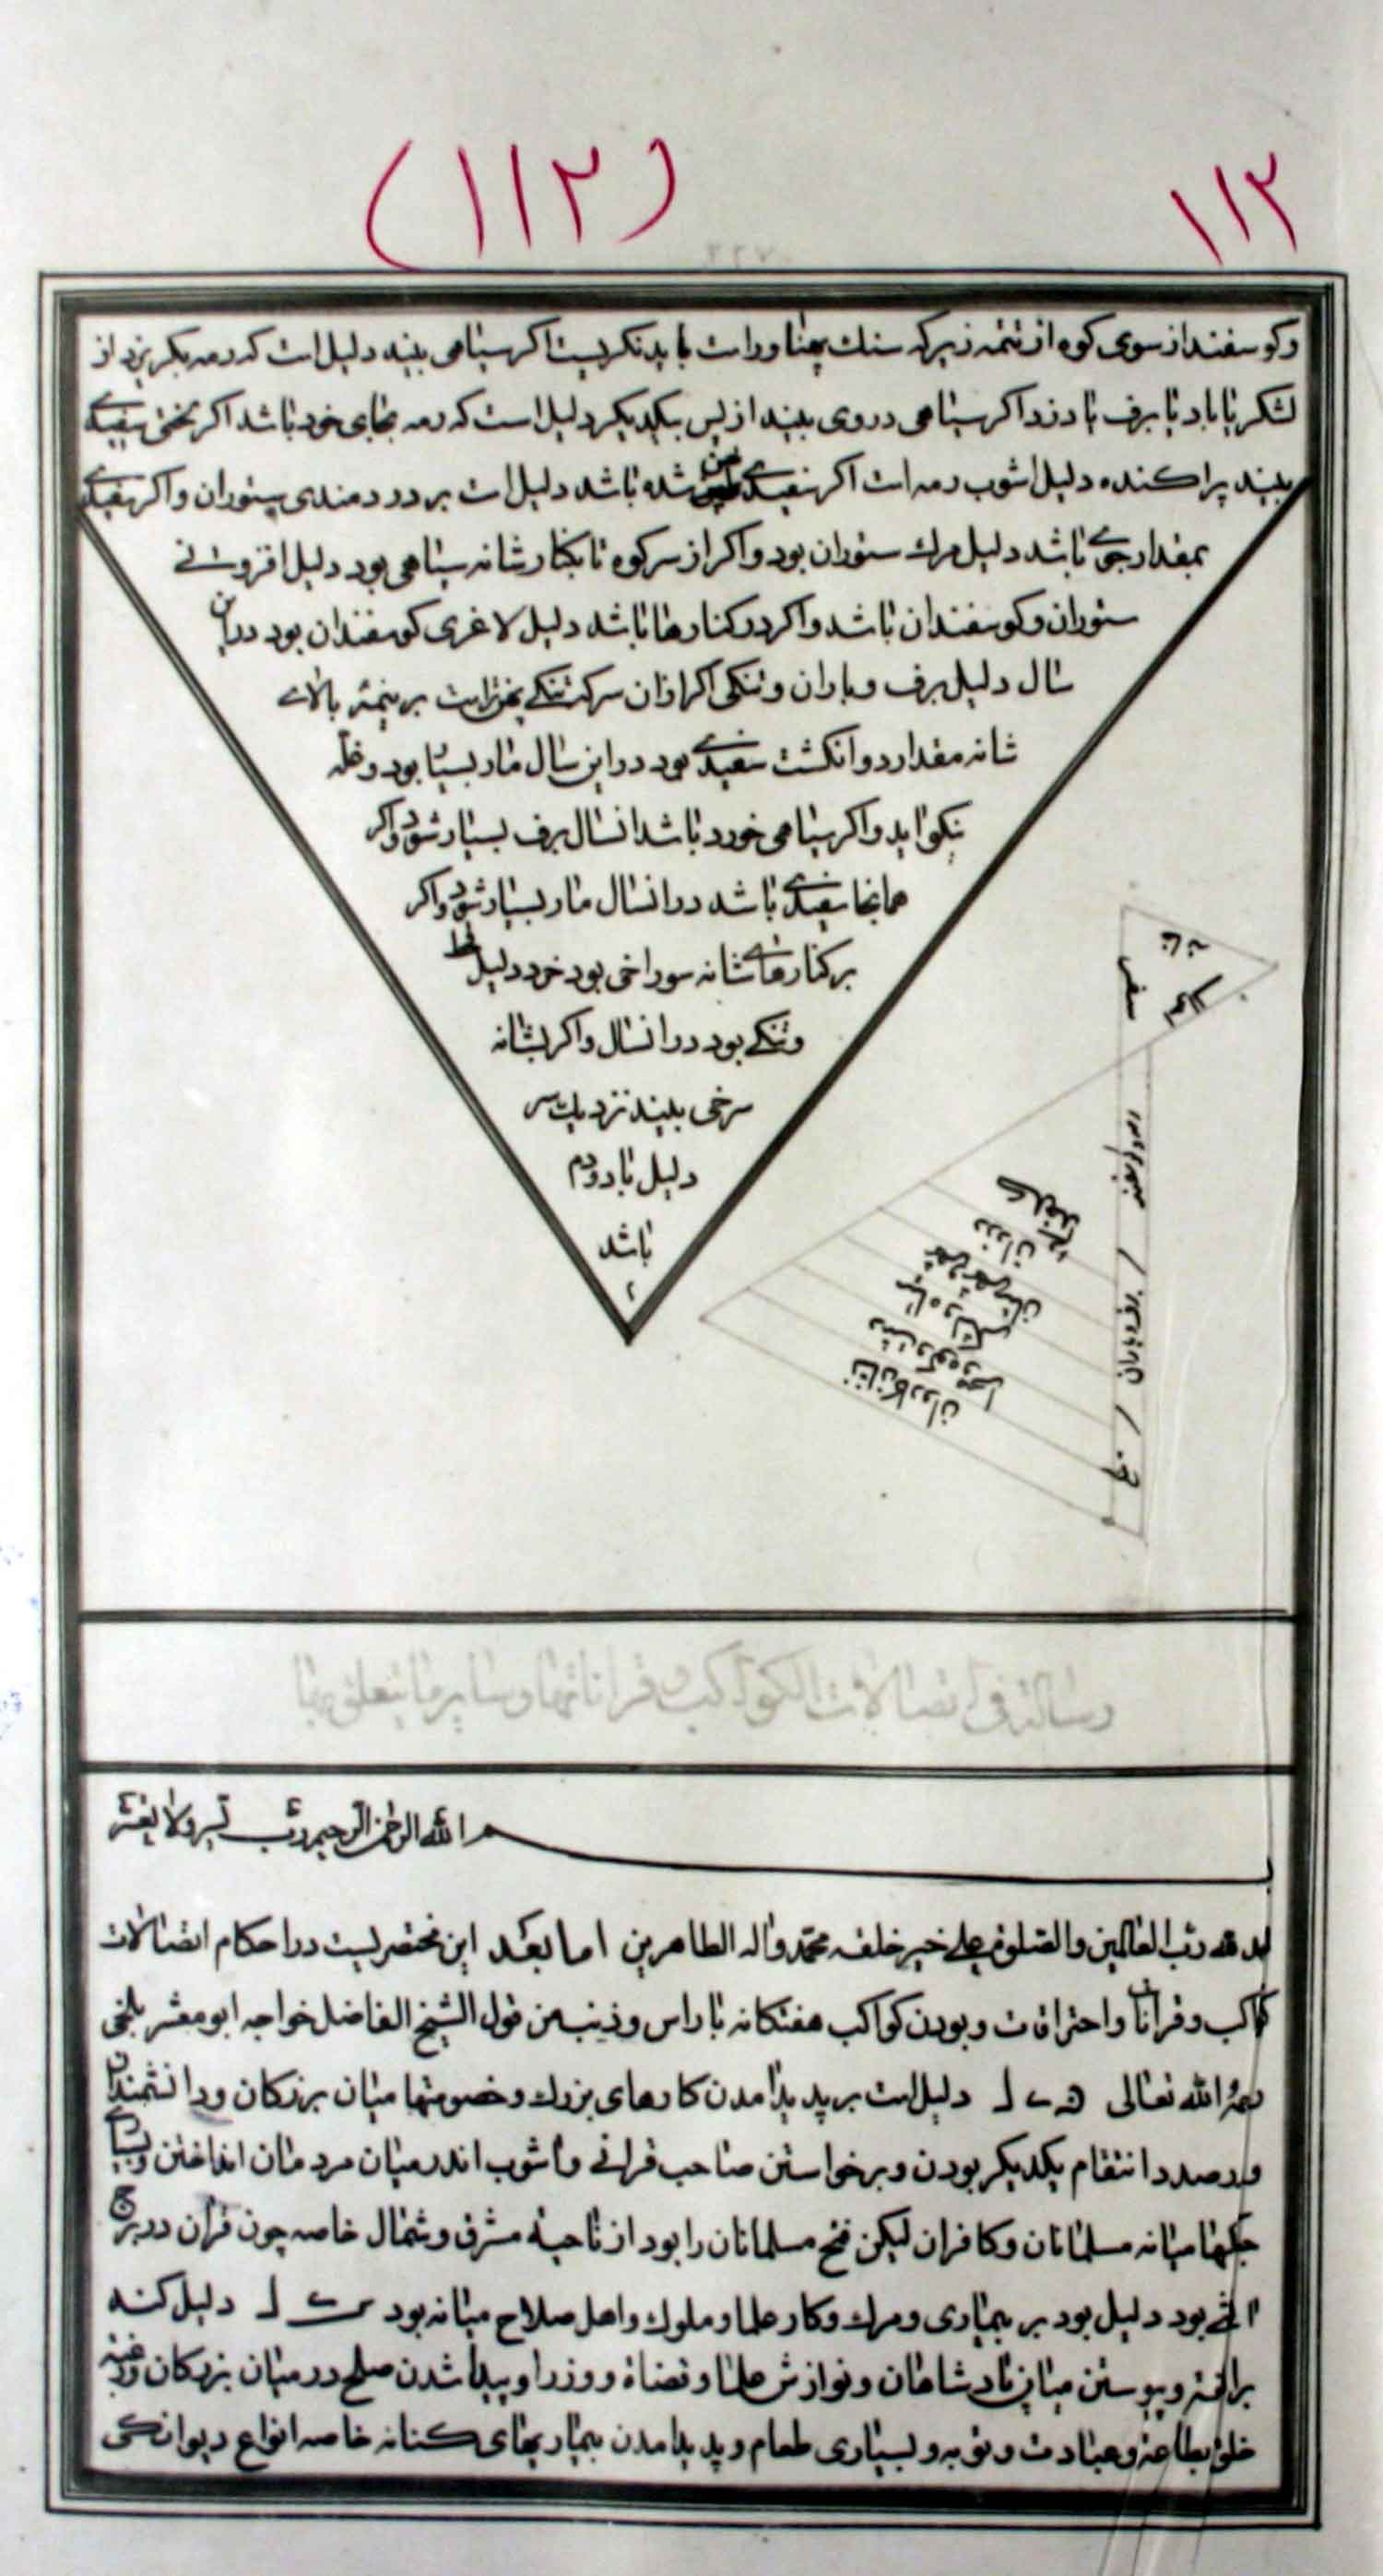 (۱۱۲) ۱۱۲
وکوسفند از سوی کوه از نتمه زیر که سنك پهناور است باید نکریست اکر سیاهی بیند دلیل است که رمه بکریزد از
لشکر یا باد یا برف یا دزد اکر سیاهی در وی بیند از پس یکدیکر دلیل است که رمه بجای خود باشد اکر بختی سفیدی
بیند پراکنده دلیل اشوب رمه است اکر سفیدی شده باشد دلیل است بر دردمندی ستوران واکر سفیدی
بمقدار جوی باشد دلیل مرك ستوران بود واکر از سر کوه تا بکنار شانه سیاهی بود دلیل افزونی
ستوران وکوسفندان باشد واکر در کنارها باشد دلیل لاغری کوسفندان بود دران
سال دلیل برف وباران وتنکی اکر ازان سر که تنکی بر نیمه بالای
شانه مقدار دو انکشت سفیدی بود در این سال مار بسیار بود وغله
نیکو اید واکر سیاهی خورد باشد انسال برف بسیار شود واکر
همانجا سفیدی باشد در انسال مار بسیار شود واکر
بر کنارهای شانه سوراخی بود خود دلیل قحط
وتنکی بود در انسال واکر بشانه
سرخی بیند نزدیك سر
دلیل باد ودم
باشد
سفر
برف وباران
رسالة فی اتصالات الکواکب وقراناتها وسایر ما یتعلق بها
بسم الله الرحمن الرحیم رب یسر ولا تعسر
الحمد لله رب العالمین والصلوة علی خیر خلقه محمد واله الطاهرین اما بعد این مختصریست در احکام اتصالات
کواکب وقرانات واحتراقات وبودن کواکب هفتکانه با راس وذنب من قول الشیخ الفاضل خواجه ابومعشر بلخی
رحمه الله تعالی دلیل است بر پدید امدن کارهای بزرك وخصومتها میان بزرکان ودانشمندان
ودر صدد انتقام یکدیکر بودن وبرخواستن صاحب قرانی واشوب اندر میان مردمان افتادن وبسیاری
جنکها میانه مسلمانان وکافران لیکن فتح مسلمانان را بود از ناحیه مشرق وشمال خاصه چون قران در برج
اتشی بود دلیل بود بر بیماری ومرك وکار علما وملوك واهل صلاح میانه بود دلیل کند
بر الفت وپیوستن میان پادشاهان ونوازش علما وقضاة ووزرا وپیدا شدن صلح در میان بزرکان ورغبت
خلق بطاعت وعبادت وتوبه وبسیاری طعام وپدید امدن بیماریهای خاصه انواع دیوانکی